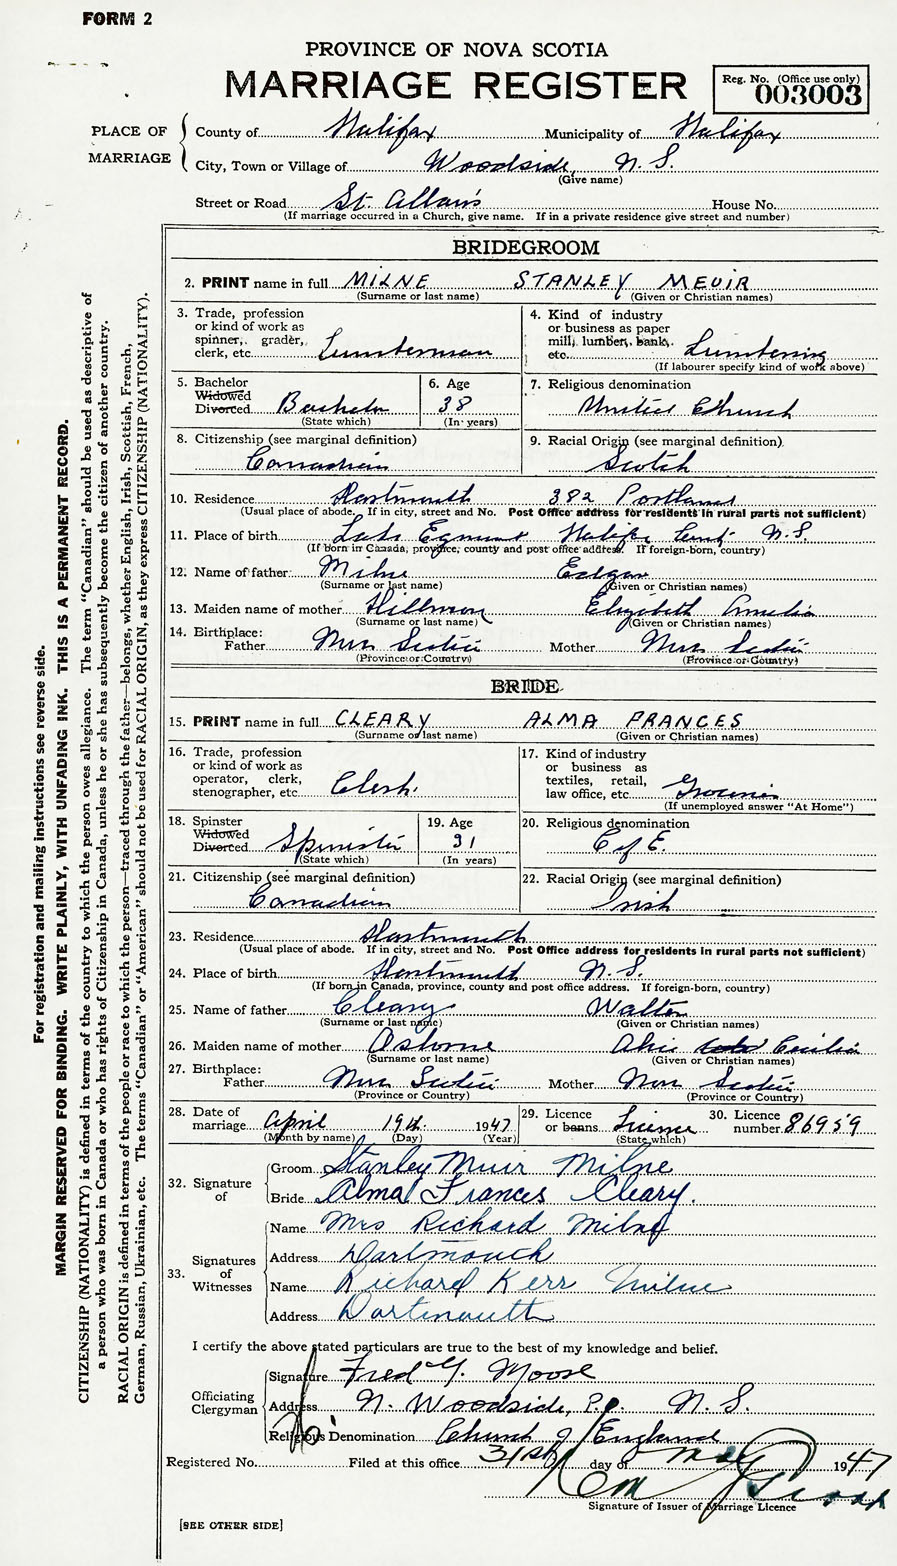 FORM 2
PROVINCE OF NOVA SCOTIA
MARRIAGE REGISTER
Reg. No. (Office use only)
003003
PLACE OF MARRIAGE
County of Halifax Municipality of Halifax
City, Town or Village of Woodside, N.S.
(Give name)
Street or Road St. Alban's House No.
(If marriage occurred in a Church, give name. If in a private residence give street and number)
BRIDEGROOM
2. PRINT name in full MILNE STANLEY MEUIR
(Surname or last name) (Given or Christian names)
3. Trade, profession or kind of work as spinner, grader, clerk, etc. Lumberman
4. Kind of industry or business as paper mill, lumber, bank, etc. Lumbering
(If labourer specify kind of work above)
5. Bachelor Widowed Divorced Bachelor
(State which)
6. Age 38
(In years)
7. Religious denomination United Church
8. Citizenship (see marginal definition) Canadian
9. Racial Origin (see marginal definition) Scotch
10. Residence Dartmouth 382 Portland
(Usual place of abode. If in city, street and No. Post Office address for residents in rural parts not sufficient)
11. Place of birth Lake Egmont Halifax Cunt N.S.
(If born in Canada, province, county and post office address. If foreign-born, country)
12. Name of father Milne Edgar
(Surname or last name) (Given or Christian names)
13. Maiden name of mother Hillman Elizabeth Amelia
(Surname or last name) (Given or Christian names)
14. Birthplace:
Father Nova Scotia Mother Nova Scotia
(Province or Country) (Province or Country)
BRIDE
15. PRINT name in full CLEARY ALMA FRANCES
(Surname or last name) (Given or Christian names)
16. Trade, profession or kind of work as operator, clerk, stenographer, etc. Clerk.
17. Kind of industry or business as textiles, retail, law office, etc. Groceries
(If unemployed answer "At Home")
18. Spinster Widowed Divorced Spinster
(State which)
19. Age 31
(In years)
20. Religious denomination C of E.
21. Citizenship (see marginal definition) Canadian
22. Racial Origin (see marginal definition) Irish
23. Residence Dartmouth
(Usual place of abode. If in city, street and No. Post Office address for residents in rural parts not sufficient)
24. Place of birth Dartmouth N.S.
(If born in Canada, province, county and post office address. If foreign-born, country)
25. Name of father Cleary Walter
(Surname or last name) (Given or Christian names)
26. Maiden name of mother Osborne Cecilia
(Surname or last name) (Given or Christian names)
27. Birthplace:
Father Nova Scotia Mother Nova Scotia
(Province or Country) (Province or Country)
28. Date of marriage April 19th. 1947
(Month by name) (Day) (Year)
29. Licence or banns License
(State which)
30. Licence number 86959
32. Signature of
Groom Stanley Muir Milne
Bride Alma Frances Cleary.
33. Signatures of Witnesses
Name Mrs Richard Milne
Address Dartmouth
Name Richard Kerr Milne
Address Dartmouth
I certify the above stated particulars are true to the best of my knowledge and belief.
Officiating Clergyman
Signature Fred G. Moose
Address N. Woodside, P.O. N.S.
Religious Denomination Church of England
Registered No. Filed at this office 31st day of May 1947
Signature of Issuer of Marriage Licence
[SEE OTHER SIDE]
For registration and mailing instructions see reverse side.
MARGIN RESERVED FOR BINDING. WRITE PLAINLY, WITH UNFADING INK. THIS IS A PERMANENT RECORD.
CITIZENSHIP (NATIONALITY) is defined in terms of the country to which the person owes allegiance. The term "Canadian" should be used as descriptive of
a person who was born in Canada or who has rights of Citizenship in Canada, unless he or she has subsequently become the citizen of another country.
RACIAL ORIGIN is defined in terms of the people or race to which the person—traced through the father—belongs, whether English, Irish, Scottish, French,
German, Russian, Ukrainian, etc. The terms "Canadian" or "American" should not be used for RACIAL ORIGIN, as they express CITIZENSHIP (NATIONALITY).